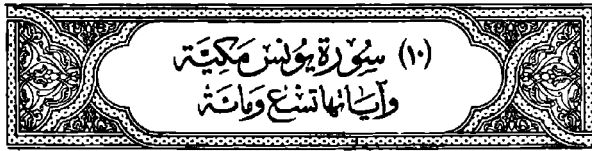 (١٠) سُورَة يُونُسَ مَكِيَّة
وَآيَاتهَا تِسْع وَمائة